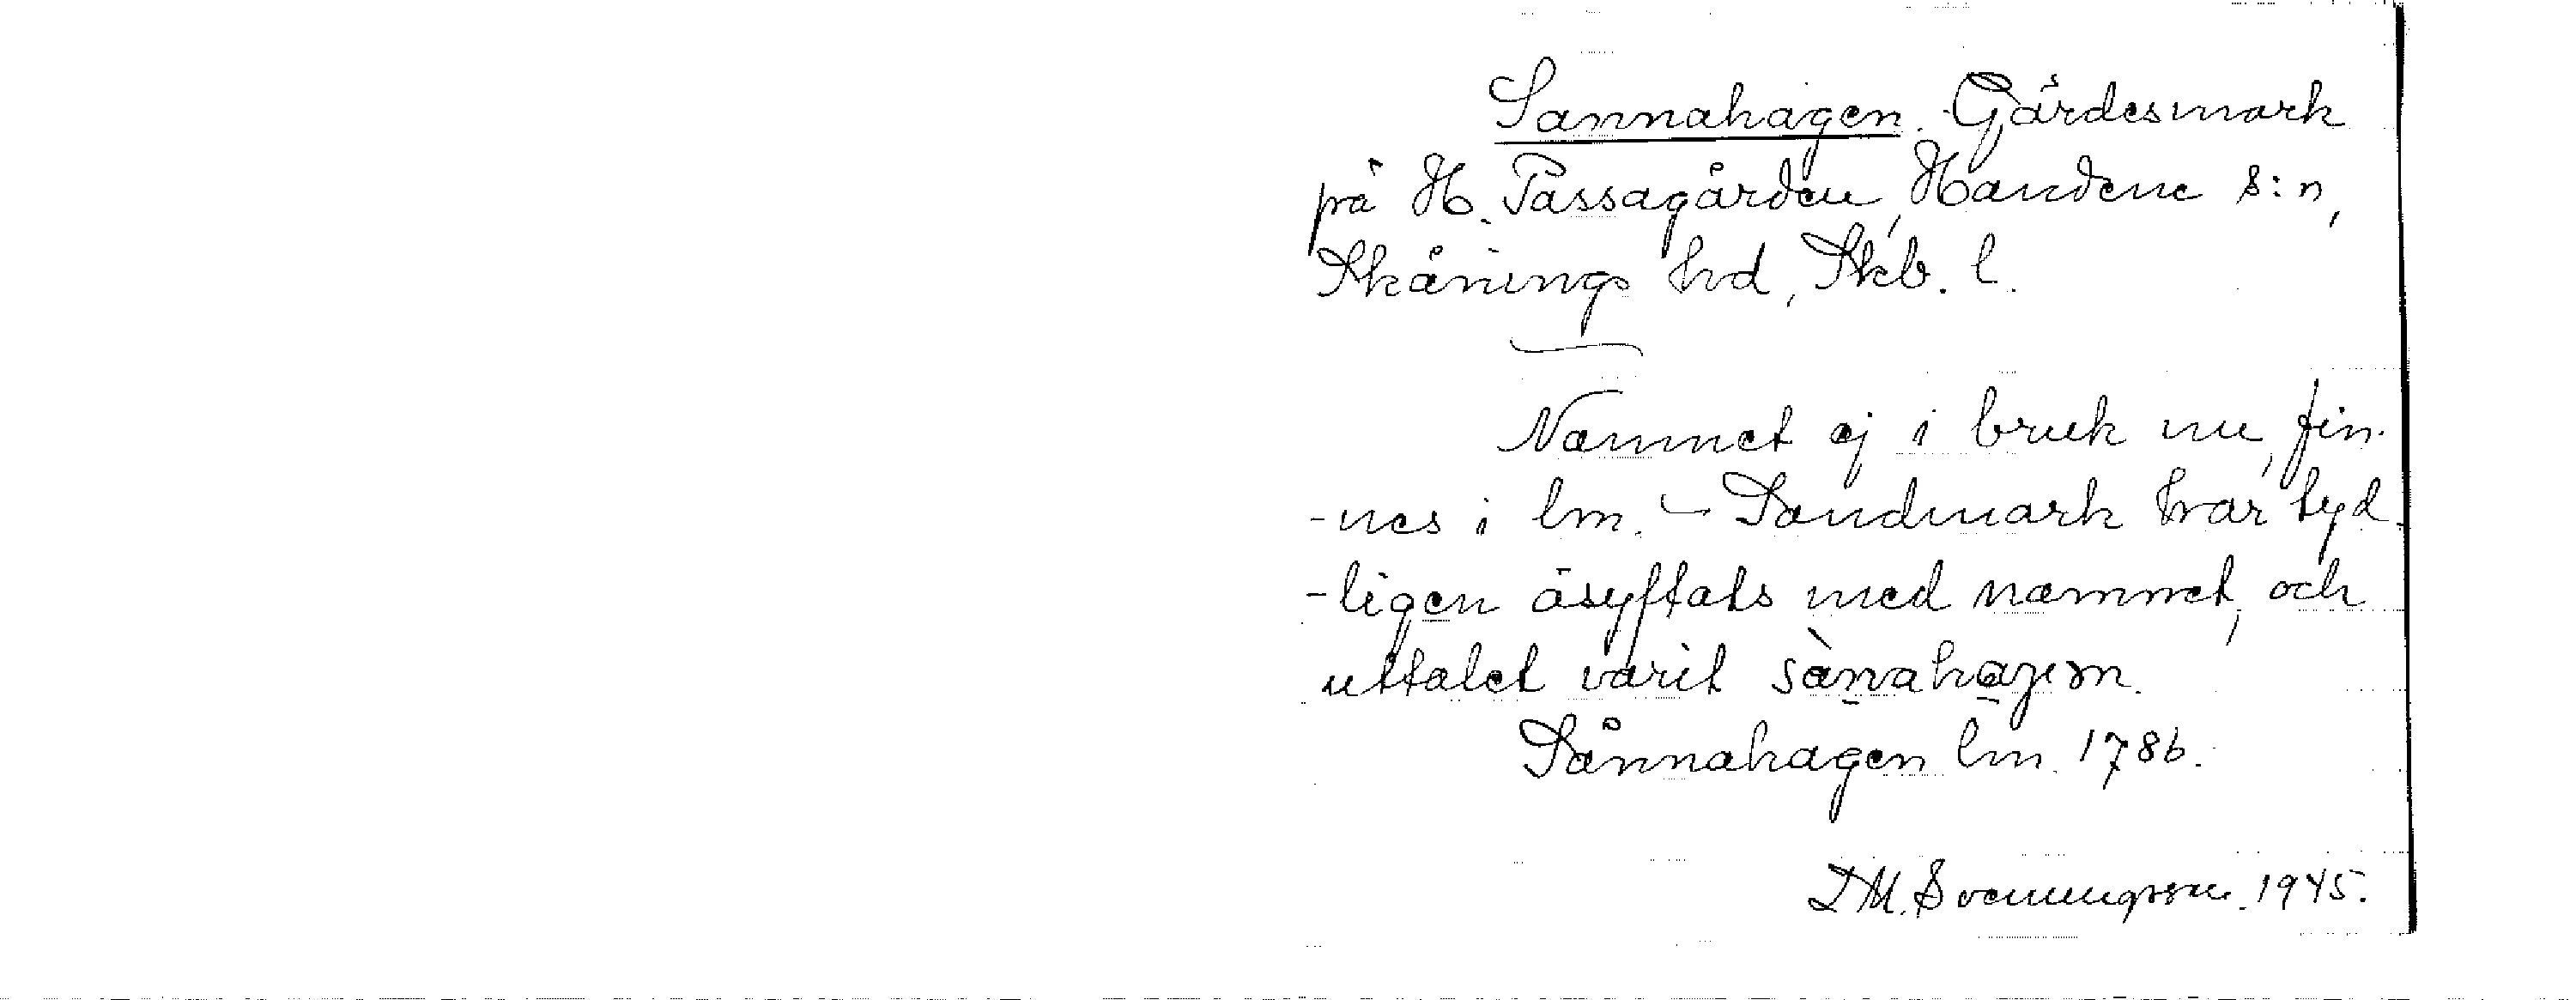 Sannahagen. Gärdesmark
på H. Passagården, Handene s:n,
Skånings hd, Skb. l.
Namnet ej i bruk nu, fin-
-nes i lm. - Sandmark har tyd-
-ligen åsyftats med namnet, och
uttalet varit sànahagen.
Sånnahagen lm. 1786.
D M. Svenningsson. 1945.